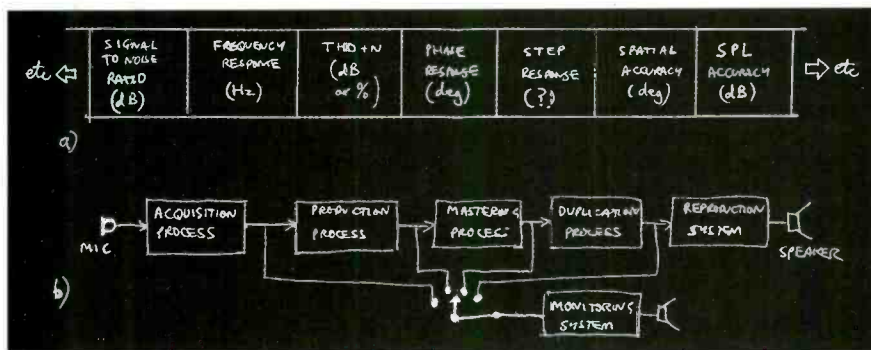 etc
SIGNAL
TO NOISE
RATIO
(dB)
FREQUENCY
RESPONSE
(Hz)
THD+N
(dB
or %)
PHASE
RESPONSE
(deg)
STEP
RESPONSE
(?)
SPATIAL
ACCURACY
(deg)
SPL
ACCURACY
(dB)
etc
a)
MIC
ACQUISITION
PROCESS
PRODUCTION
PROCESS
MASTERING
PROCESS
DUPLICATION
PROCESS
REPRODUCTION
SYSTEM
SPEAKER
b)
MONITORING
SYSTEM